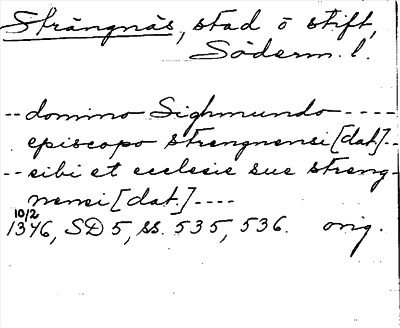 Strängnäs, stad o stift,
Söderm. l.
-- domino Sighmundo ----
episcopo strengnensi [dat.] --
-- sibi et ecclesie sue streng-
nensi [dat.] ----
10/2
1346, SD 5, ss. 535, 536. orig.